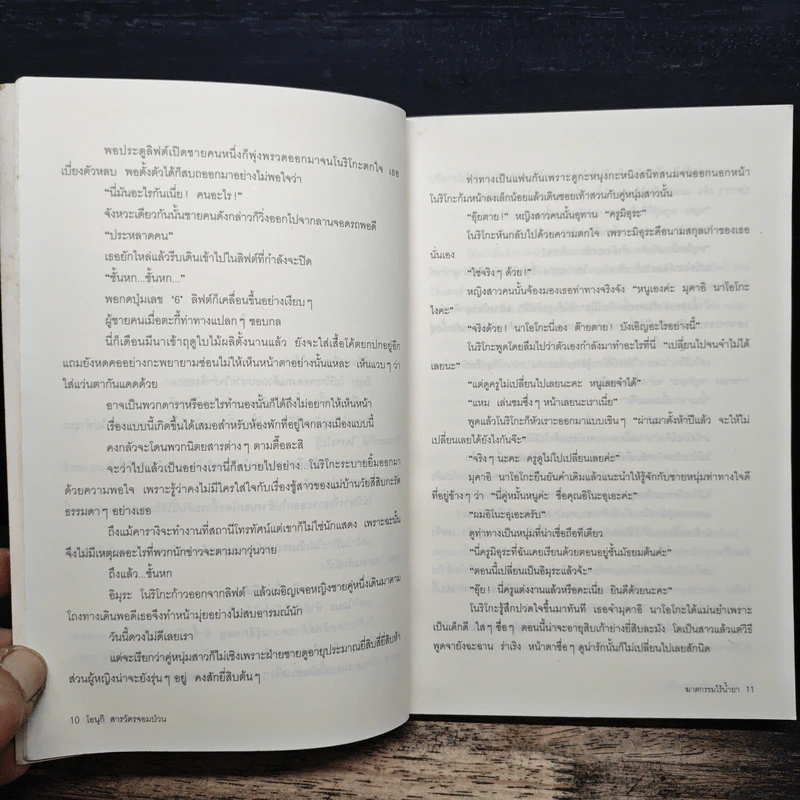 พอประตูลิฟต์เปิดชายคนหนึ่งก็พุ่งพรวดออกมาจนโนริโกะตกใจ เธอ
เบี่ยงตัวหลบ พอตั้งตัวได้ก็สบถออกมาอย่างไม่พอใจว่า
“นี่มันอะไรกันเนี่ย! คนอะไร!”
จังหวะเดียวกันนั้นชายคนดังกล่าวก็วิ่งออกไปจากลานจอดรถพอดี
“ประหลาดคน”
เธอยักไหล่แล้วรีบเดินเข้าไปในลิฟต์ที่กำลังจะปิด
“ชั้นหก...ชั้นหก...”
พอกดปุ่มเลข ‘6’ ลิฟต์ก็เคลื่อนขึ้นอย่างเงียบๆ
ผู้ชายคนเมื่อตะกี้ท่าทางแปลกๆ ชอบกล
นี่ก็เดือนมีนาเข้าฤดูใบไม้ผลิตั้งนานแล้ว ยังจะใส่เสื้อโค้ตยกปกอยู่อีก
แถมยังหดคออย่างกะพยายามซ่อนไม่ให้เห็นหน้าตาอย่างนั้นแหละ เห็นแวบๆ ว่า
ใส่แว่นตากันแดดด้วย
อาจเป็นพวกดาราหรืออะไรทำนองนั้นก็ได้ถึงไม่อยากให้เห็นหน้า
เรื่องแบบนี้เกิดขึ้นได้เสมอสำหรับห้องพักที่อยู่ใจกลางเมืองแบบนี้
คงกลัวจะโดนพวกนิตยสารต่างๆ ตามตื๊อละสิ
จะว่าไปแล้วเป็นอย่างเรานี่ก็สบายไปอย่าง...โนริโกะระบายยิ้มออกมา
ด้วยความพอใจ เพราะรู้ว่าคงไม่มีใครใส่ใจกับเรื่องชู้สาวของแม่บ้านวัยสี่สิบกะรัต
ธรรมดาๆ อย่างเธอ
ถึงแม้คารางิจะทำงานที่สถานีโทรทัศน์แต่เขาก็ไม่ใช่นักแสดง เพราะฉะนั้น
จึงไม่มีเหตุผลอะไรที่พวกนักข่าวจะตามมาวุ่นวาย
ถึงแล้ว...ชั้นหก
อิมุระ โนริโกะก้าวออกจากลิฟต์ แล้วเผอิญเจอหญิงชายคู่หนึ่งเดินมาตาม
โถงทางเดินพอดีเธอจึงทำหน้ามุ่ยอย่างไม่สบอารมณ์นัก
วันนี้ดวงไม่ดีเลยเรา
แต่จะเรียกว่าคู่หนุ่มสาวก็ไม่เชิงเพราะฝ่ายชายดูอายุประมาณยี่สิบสี่ยี่สิบห้า
ส่วนผู้หญิงน่าจะยังรุ่นๆ อยู่ คงสักยี่สิบต้นๆ
10 โอนุกิ สารวัตรจอมป่วน
ท่าทางเป็นแฟนกันเพราะดูกะหนุงกะหนิงสนิทสนมจนออกนอกหน้า
โนริโกะก้มหน้าลงเล็กน้อยแล้วเดินซอยเท้าสวนกับคู่หนุ่มสาวนั้น
“อุ๊ยตาย!” หญิงสาวคนนั้นอุทาน “ครูมิอุระ”
โนริโกะหันกลับไปด้วยความตกใจ เพราะมิอุระคือนามสกุลเก่าของเธอ
นั่นเอง
“ใช่จริงๆ ด้วย!”
หญิงสาวคนนั้นจ้องมองเธอท่าทางจริงจัง “หนูเองค่ะ มุคาอิ นาโอโกะ
ไงคะ”
“จริงด้วย! นาโอโกะนี่เอง ต๊ายตาย! บังเอิญอะไรอย่างนี้”
โนริโกะพูดโดยลืมไปว่าตัวเองกำลังมาทำอะไรที่นี่ “เปลี่ยนไปจนจำไม่ได้
เลยนะ”
“แต่ดูครูไม่เปลี่ยนไปเลยนะคะ หนูเลยจำได้”
“แหม เล่นชมซึ่งๆ หน้าเลยนะเราเนี่ย”
พูดแล้วโนริโกะก็หัวเราะออกมาแบบเขินๆ “ผ่านมาตั้งห้าปีแล้ว จะให้ไม่
เปลี่ยนเลยได้ยังไงกันจ๊ะ”
“จริงๆ นะคะ ครูดูไม่ไปเปลี่ยนเลยค่ะ”
มุคาอิ นาโอโกะยืนยันคำเดิมแล้วแนะนำให้รู้จักกับชายหนุ่มท่าทางใจดี
ที่อยู่ข้างๆ ว่า “นี่คู่หมั้นหนูค่ะ ชื่อคุณอิโนะอุเอะค่ะ”
“ผมอิโนะอุเอะครับ”
ดูท่าทางเป็นหนุ่มที่น่าเชื่อถือทีเดียว
“นี่ครูมิอุระที่ฉันเคยเรียนด้วยตอนอยู่ชั้นมัธยมต้นค่ะ”
“ตอนนี้เปลี่ยนเป็นอิมุระแล้วจ้ะ”
“อุ๊ย! นี่ครูแต่งงานแล้วหรือคะเนี่ย ยินดีด้วยนะคะ”
โนริโกะรู้สึกปวดใจขึ้นมาทันที เธอจำมุคาอิ นาโอโกะได้แม่นยำเพราะ
เป็นเด็กดี ใสๆ ซื่อๆ ตอนนี้น่าจะอายุสิบเก้าย่างยี่สิบละมัง โตเป็นสาวแล้วแต่วิธี
พูดจายังฉะฉาน ร่าเริง หน้าตาซื่อๆ ดูน่ารักนั้นก็ไม่เปลี่ยนไปเลยสักนิด
ฆาตกรรมไร้น้ำยา 11